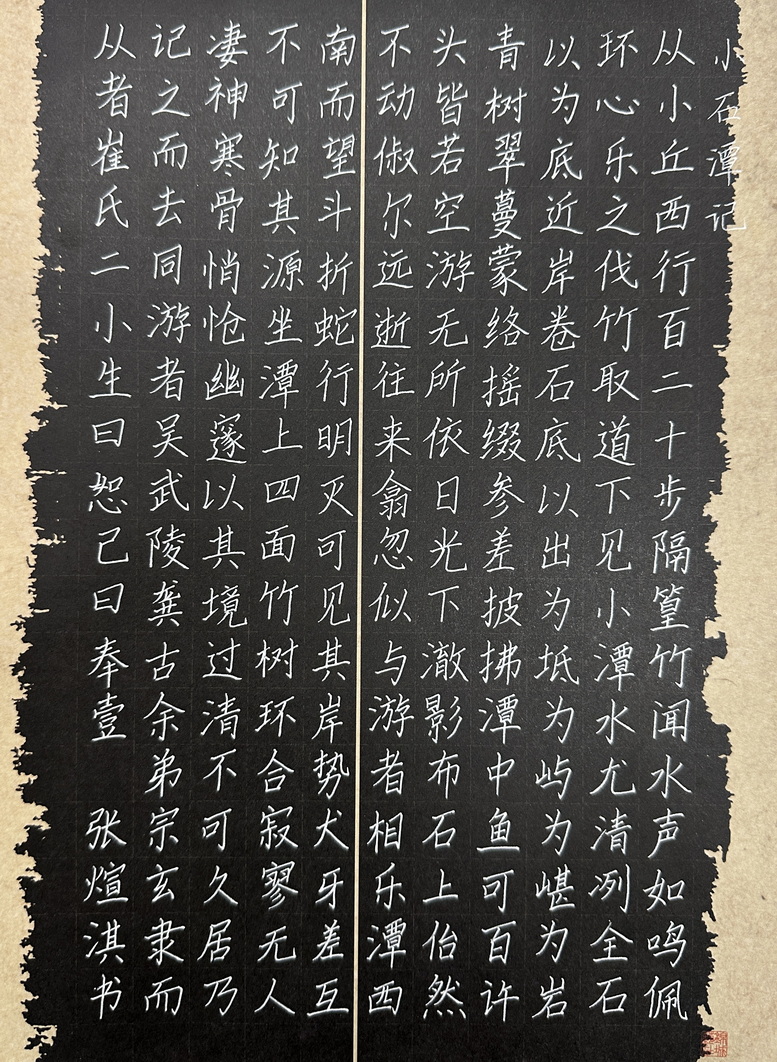 小石潭记
从小丘西行百二十步隔篁竹闻水声如鸣佩
环心乐之伐竹取道下见小潭水尤清冽全石
以为底近岸卷石底以出为坻为屿为嵁为岩
青树翠蔓蒙络摇缀参差披拂潭中鱼可百许
头皆若空游无所依日光下澈影布石上佁然
不动俶尔远逝往来翕忽似与游者相乐潭西
南而望斗折蛇行明灭可见其岸势犬牙差互
不可知其源坐潭上四面竹树环合寂寥无人
凄神寒骨悄怆幽邃以其境过清不可久居乃
记之而去同游者吴武陵龚古余弟宗玄隶而
从者崔氏二小生曰恕己曰奉壹 张煊淇书